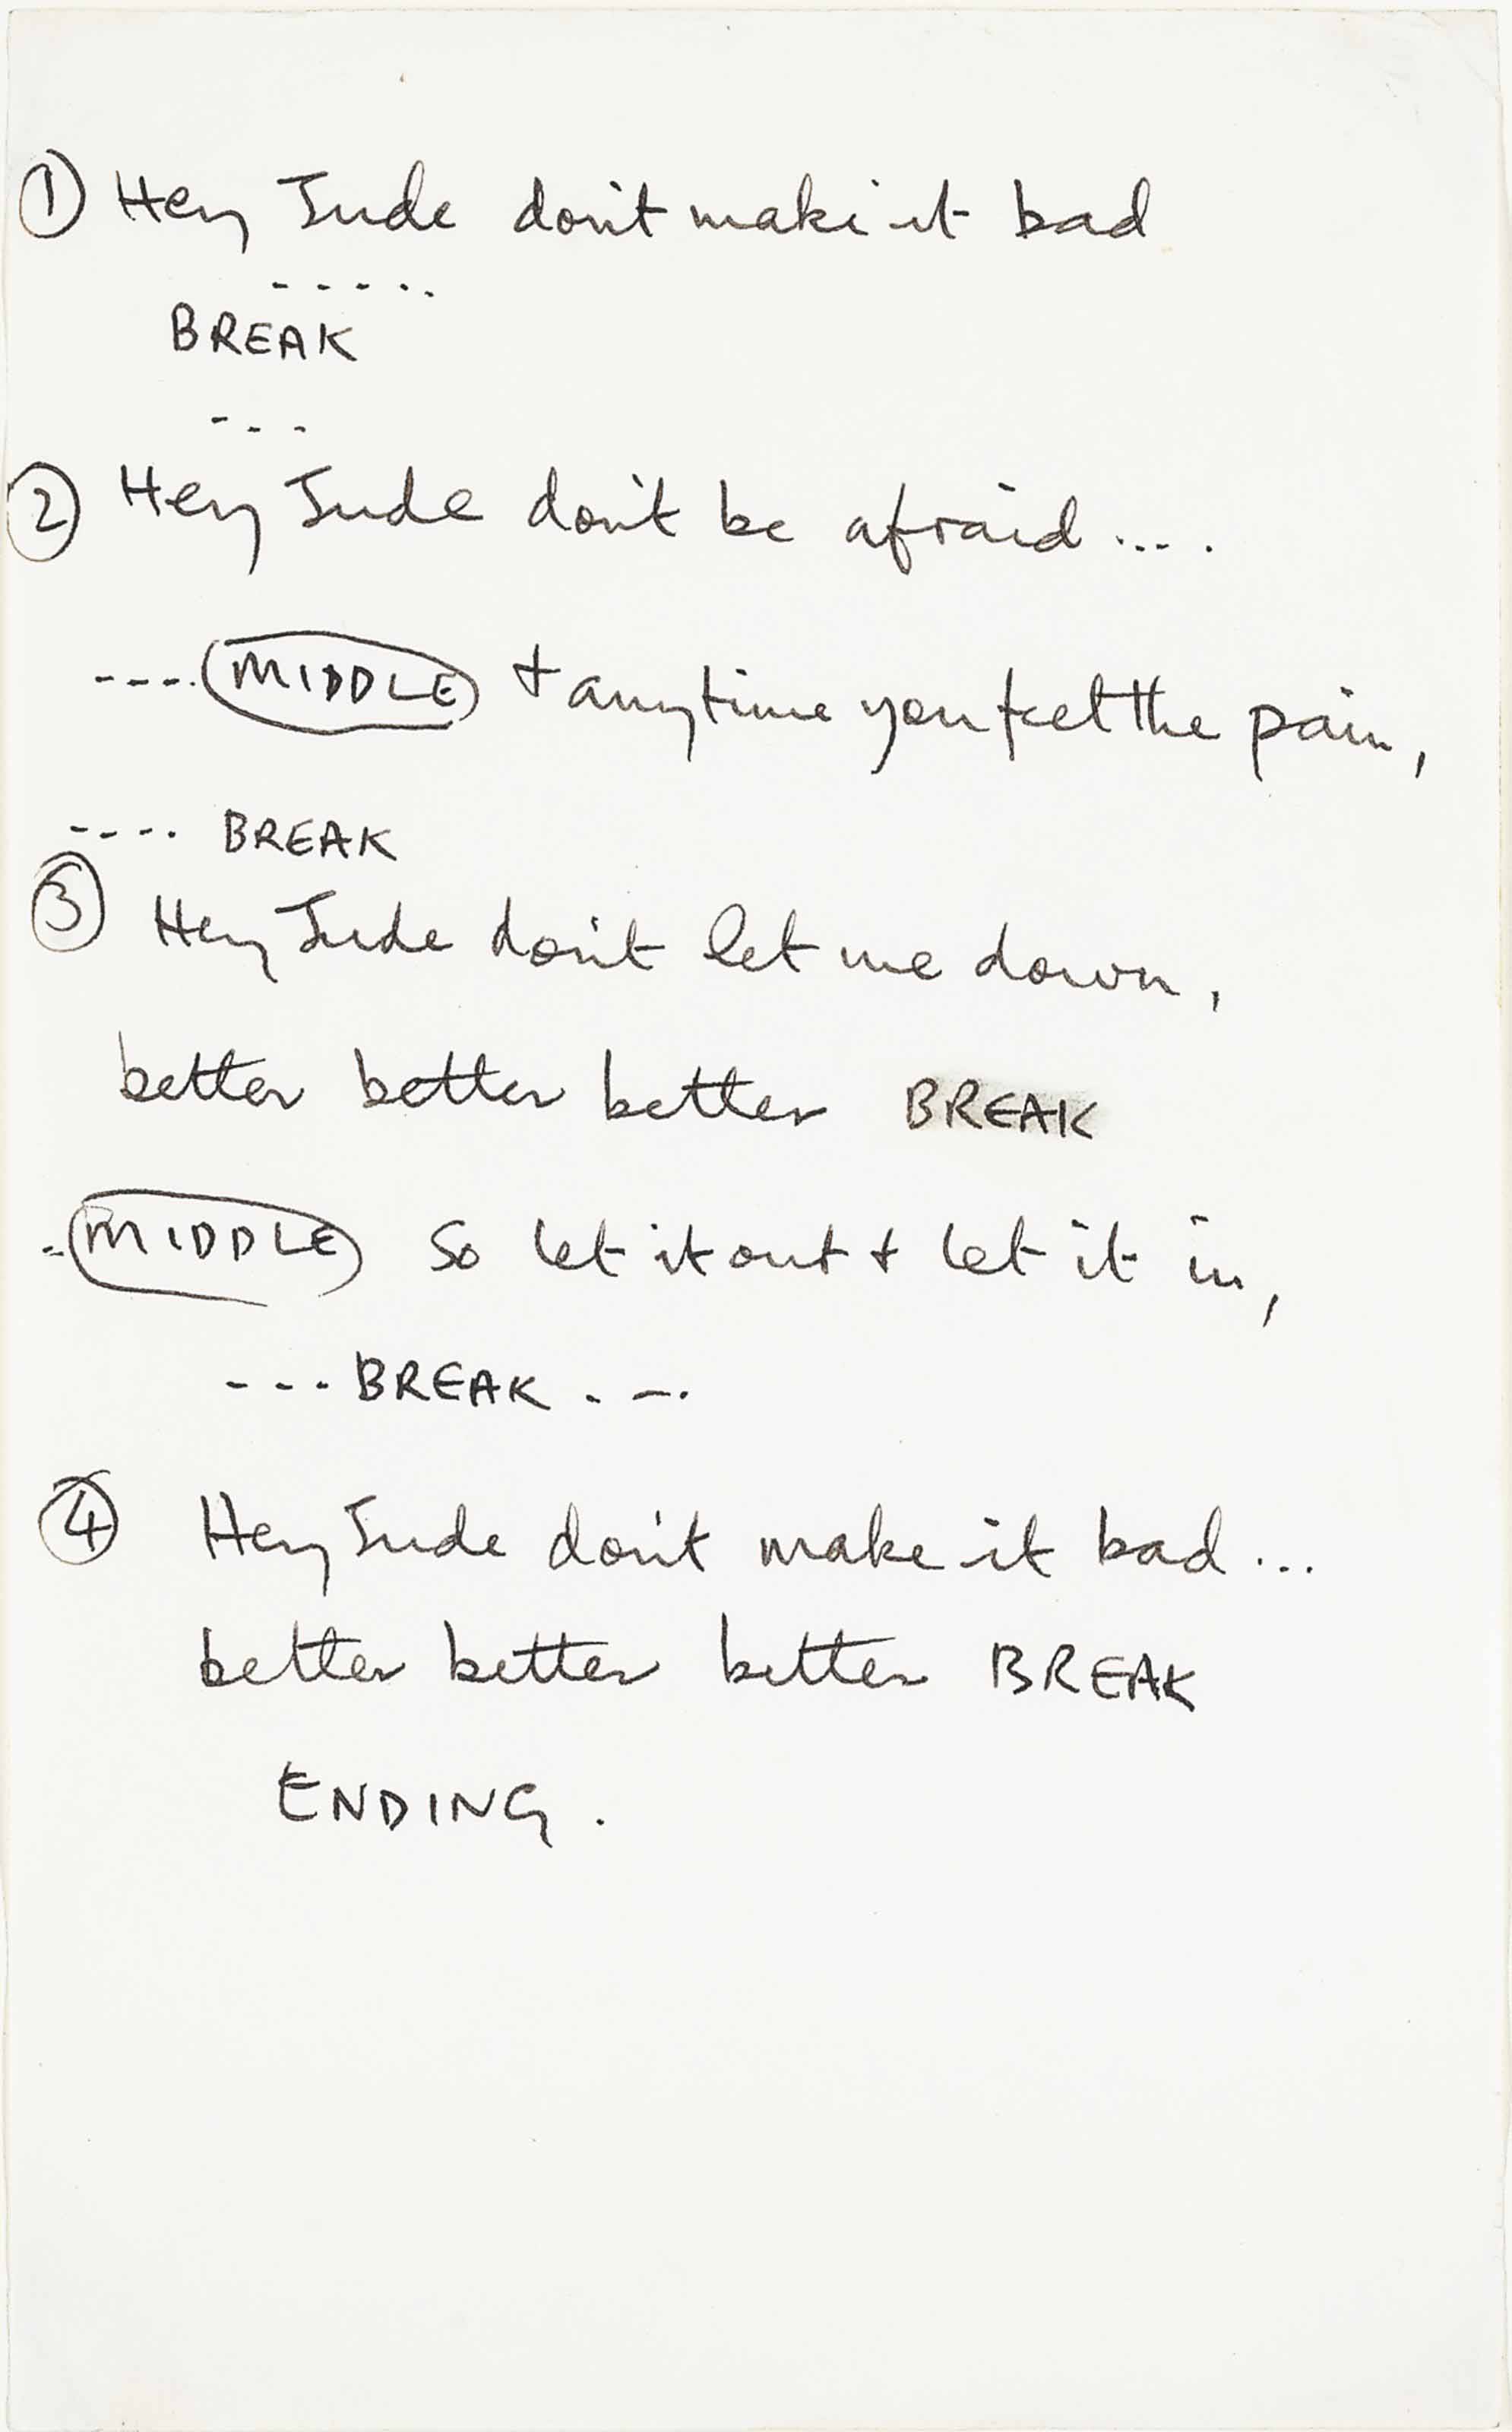 ① Hey Jude don't make it bad
.....
BREAK
...
② Hey Jude don't be afraid....
---- MIDDLE + anytime you feel the pain,
---- BREAK
③ Hey Jude don't let me down,
better better better BREAK
- MIDDLE So let it out + let it in,
--- BREAK . -.
④ Hey Jude don't make it bad...
better better better BREAK
ENDING.